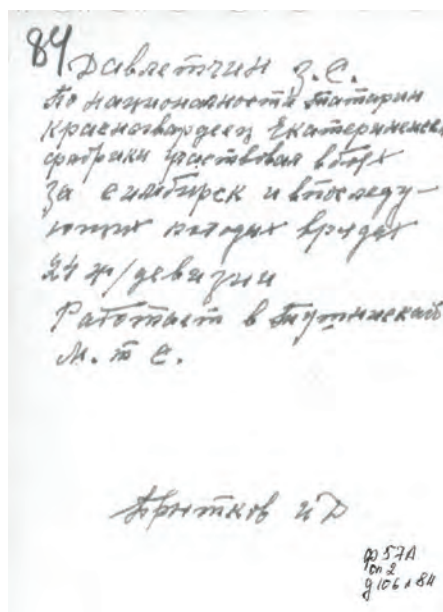 84
Давлетчин З.С.
По национальности Татарин
красногвардеец Екатерининск
фабрики участвовал в боях
За Симбирск и впоследу-
ющих походах врядах
24 ж/девизии
Работает в
М. т С.
Брытков И Д
ф 57А
оп 2
д 106 л 84